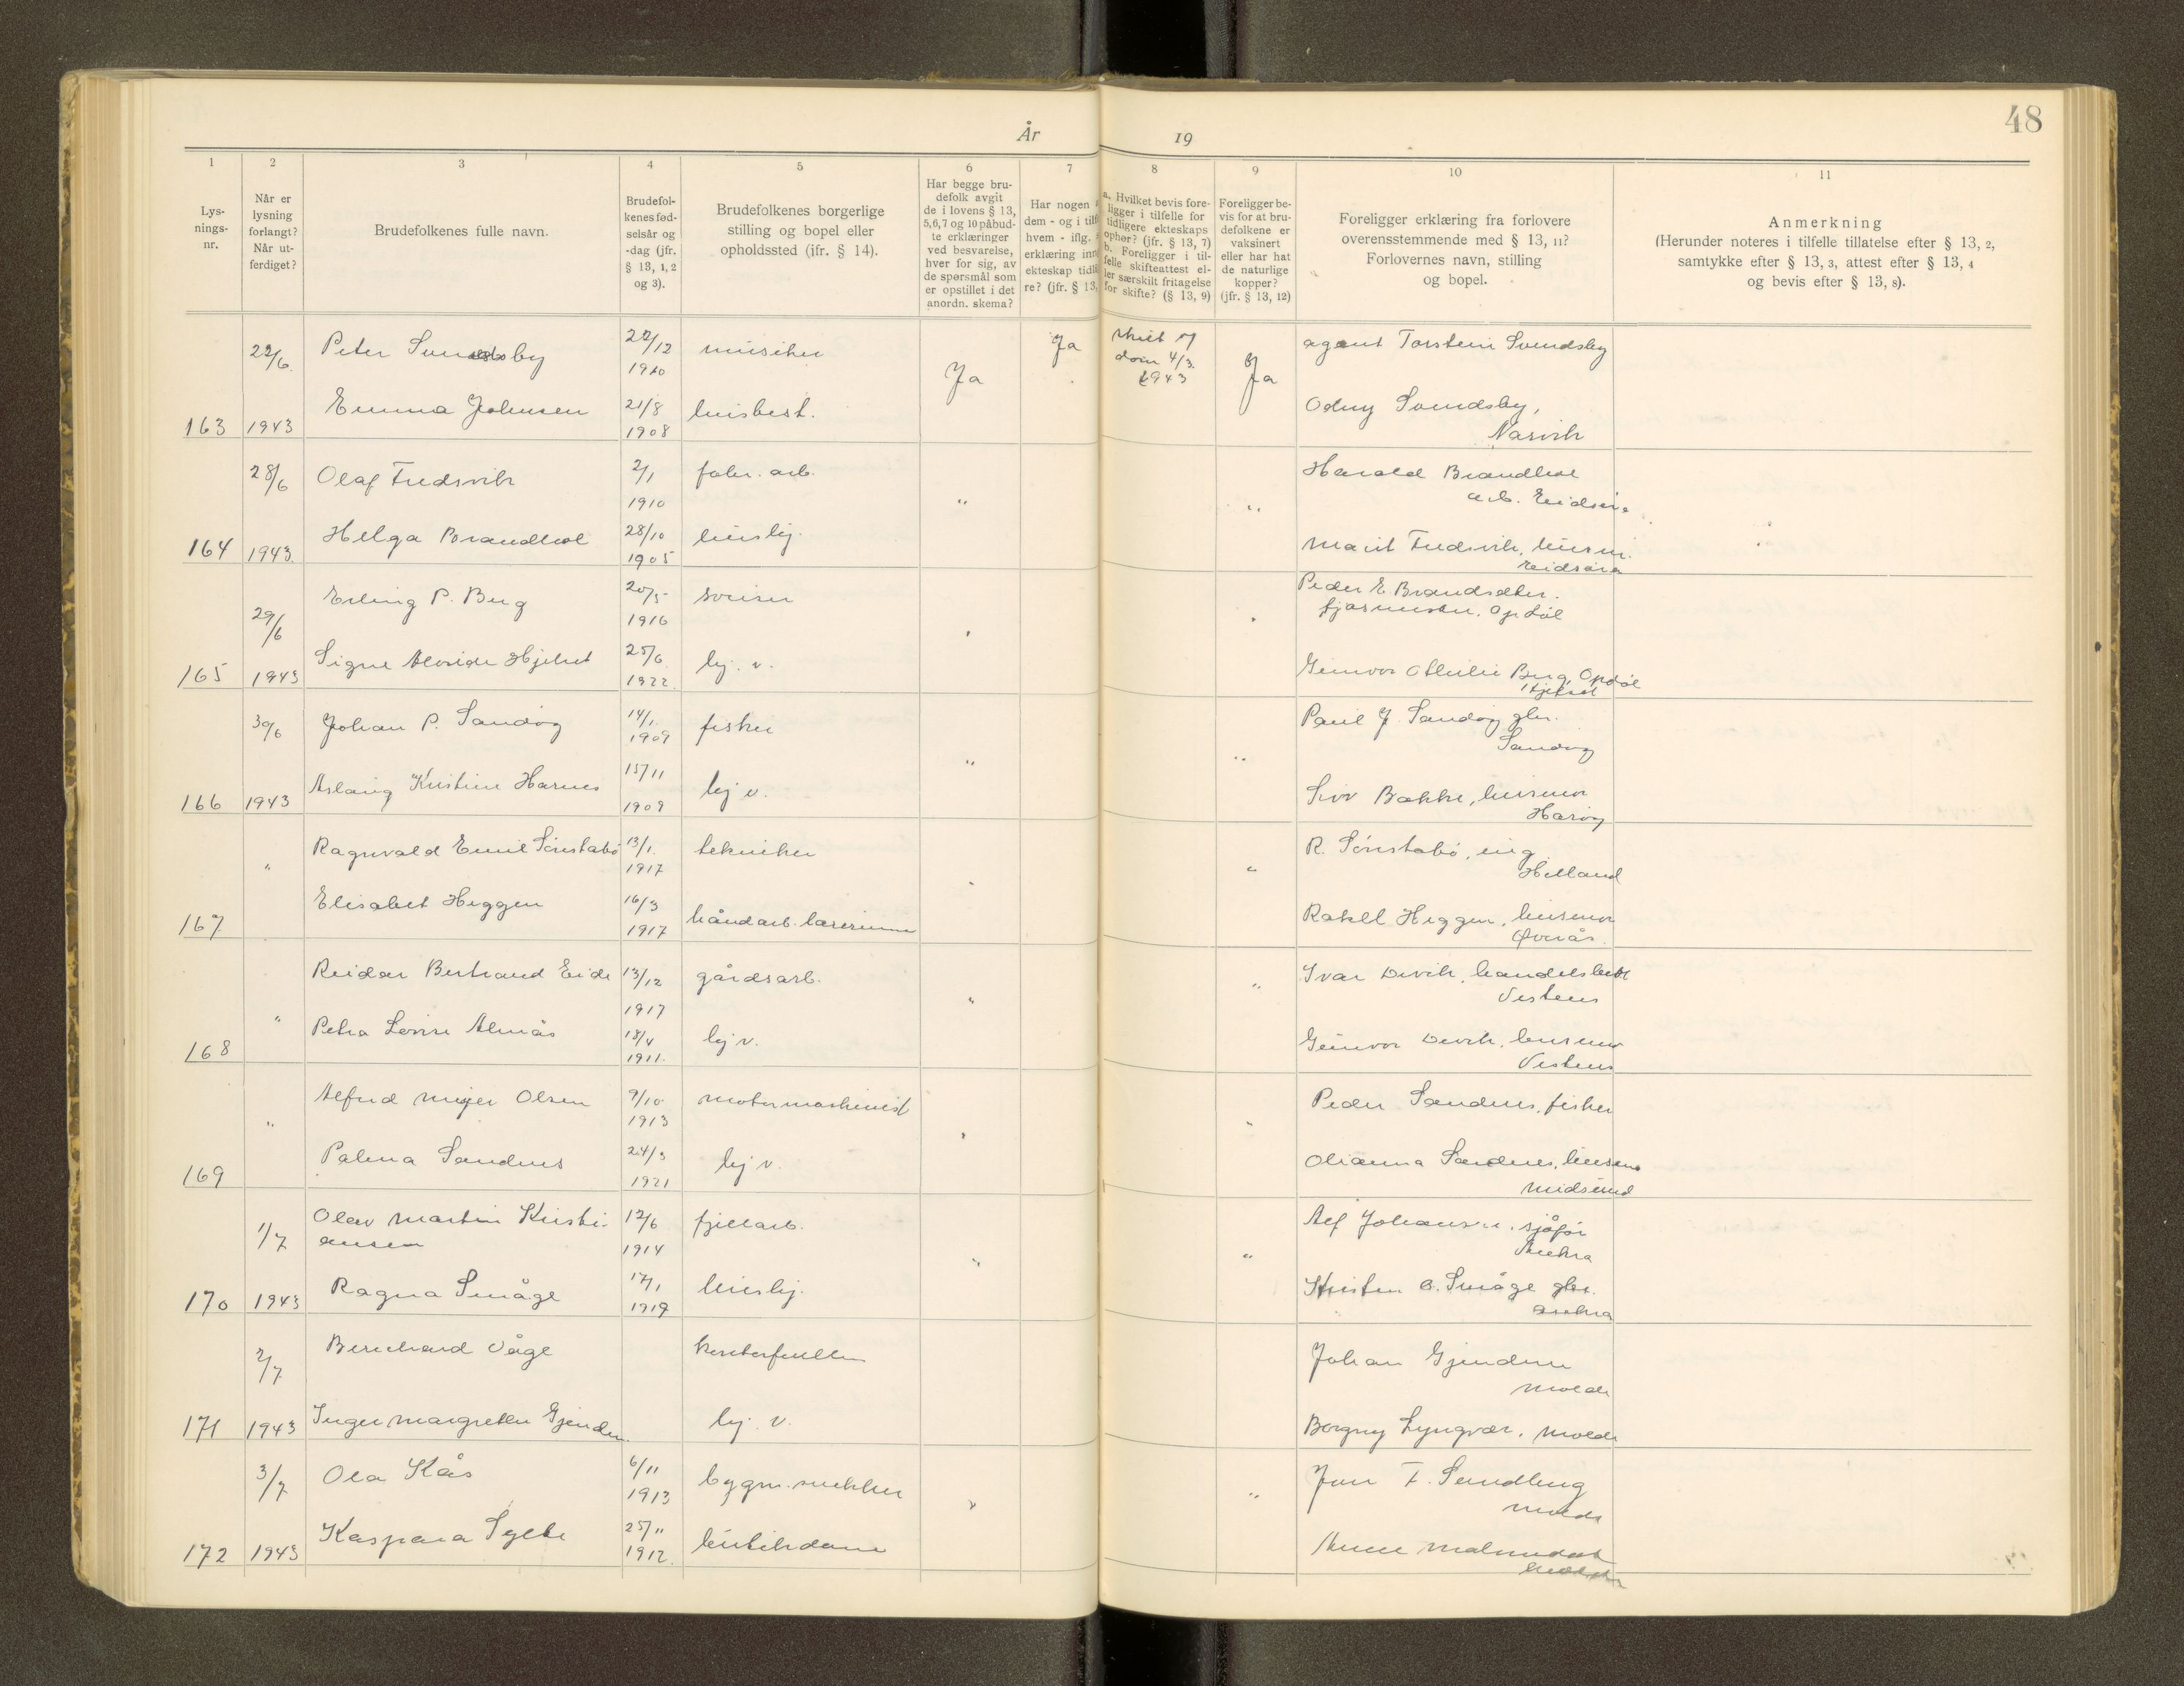 48
År 19
1
Lys-
nings-
nr.
2
Når er
lysning
forlangt?
Når ut-
ferdiget?
3
Brudefolkenes fulle navn.
4
Brudefol-
kenes fød-
selsår og
-dag (jfr.
§ 13, 1, 2
og 3).
5
Brudefolkenes borgerlige
stilling og bopel eller
opholdssted (jfr. § 14).
6
Har begge bru-
defolk avgit
de i lovens § 13,
5, 6, 7 og 10 påbud-
te erklæringer
ved besvarelse,
hver for sig, av
de spørsmål som
er opstillet i det
anordn. skema?
7
Har nogen
dem - og i tilf
hvem - iflg.
erklæring inn
ekteskap tidli
re? (jfr. § 13,
8
a. Hvilket bevis fore-
ligger i tilfelle for
tidligere ekteskaps
ophør? (jfr. § 13, 7)
b. Foreligger i til-
felle skifteattest el-
ler særskilt fritagelse
for skifte? (§ 13, 9)
9
Foreligger be-
vis for at bru-
defolkene er
vaksinert
eller har hat
de naturlige
kopper?
(jfr. § 13, 12)
10
Foreligger erklæring fra forlovere
overensstemmende med § 13, 11?
Forlovernes navn, stilling
og bopel.
11
Anmerkning
(Herunder noteres i tilfelle tillatelse efter § 13, 2,
samtykke efter § 13, 3, attest efter § 13, 4
og bevis efter § 13, 8).
163 22/6 1943
Peter Svendsby 1910 musiker
Ja Ja
dom 4/3
1943
Ja
agent Torstein Svendsby
Emma Johnsen 21/8 1908 husbest.
Odny Svendsby,
Narvik
164 28/6 1943
Olaf Tredsvik 2/1 1910 fabr. arb.
" "
Harald Brandhol
arb. Eidsøra
Helga Brandhol 28/10 1905 huslig.
Marit Tredsvik, husm.
Eidsøra
165 29/6 1943
Erling P. Berg 20/5 1916
Peder E Brandsæter.
fjøsmester. Opdøl
Signe Alvide Hjelset 25/6 1922 hj. v.
Gunvor Otheilie Berg, Opdøl
Hjelset
166 30/6 1943
Johan P. Sandøy 14/1 1909 fisker
" "
Paul J. Sandøy gbr.
Sandøy
Aslaug Kristine Harnes 15/11 1909 hj v.
Siv Bakke, husmor
Harøy
167 "
Ragnvald Emil Sønstabø 13/1 1917 tekniker
"
R. Sønstabø, ing
Helland
Elisabet Heggen 16/3 1917 håndarb. lærerinne
Rakel Heggen, husmor
Øverås.
168 "
Reidar Bertrand Eide 13/12 1917 gårdsarb.
" "
Ivar Devik, handelsbest
Vestnes
Petra Lovise Almås 18/4 1911. hj v.
Gunvor Devik, husmor
Vestnes
169 "
Alfred Meyer Olsen 9/10 1913 motormaskinist
Peder Sandnes, fisker
Palma Sandnes 24/3 1921 hj v.
Olianna Sandnes, husmor
Midsund
170 1/7 1943
Olav Martin Kristi-
ansen 12/6 1914 fjellarb.
" "
Alf Johansen, sjåfør
Aukra
Ragna Småge 17/1 1919 huslig.
Kristen O. Småge gbr.
Aukra
171 2/7 1943
Bernhard Våge kontorfullm
Johan Gjendem
Molde
Inger Margrethe Gjendem hj. v.
Borgny Lyngvær, Molde
172 3/7 1943
Ola Kås 6/11 1913 bygn. snekker
" "
Jon T. Sundberg
Molde
Kaspara Sylte 25/11 1912 butikdame
Anne Malmedal
Molde